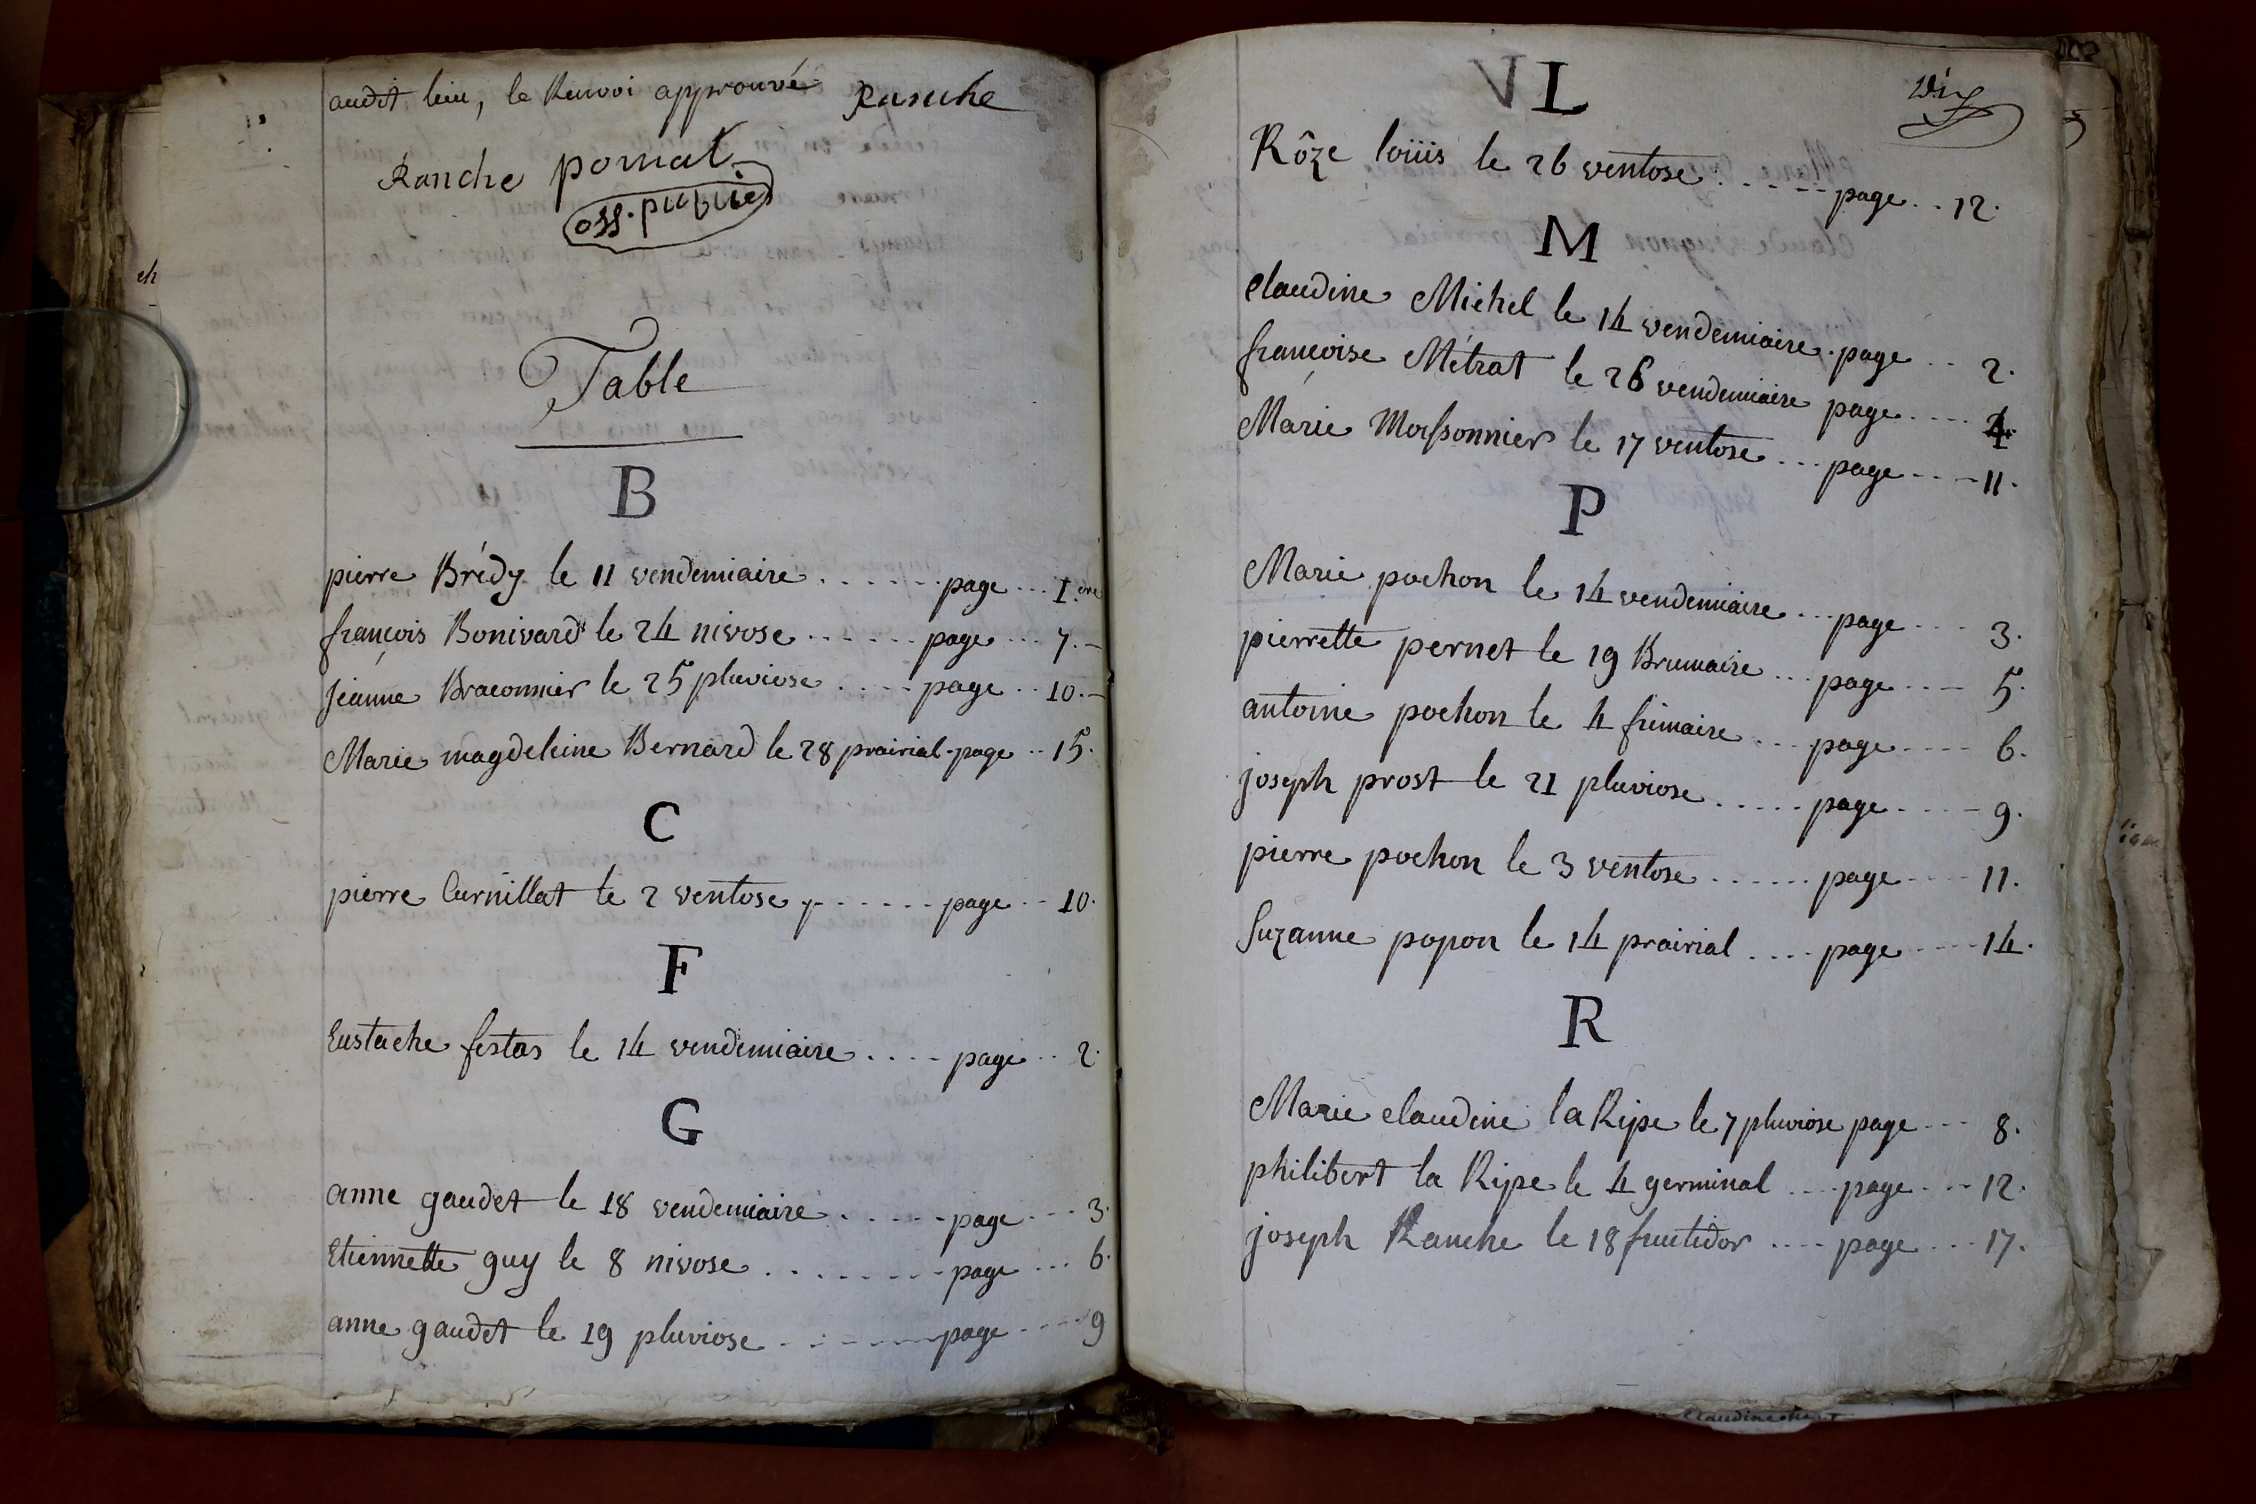 audit lieu, le Renvoi approuvé Ranche
Ranche pornat
off. public
Table
B
pierre Brédy le 11 vendemiaire . . . . . . . page . . . 1.ere
françois Bonivard le 24 nivose . . . . . . page . . . 7. -
jeanne Braconnier le 25 pluviose . . . . . page . . 10. -
Marie magdeleine Bernard le 28 prairial . page . . 15.
C
pierre Curnillat le 2 ventose . . . . . . . page . . 10.
F
Eustache festas le 14 vendemiaire . . . . page . . 2.
G
anne gaudet le 18 vendemiaire . . . . . . page . . . 3.
Etiennette guy le 8 nivose . . . . . . . . page . . . 6.
anne gaudet le 19 pluviose . . . . . . . page . . . . 9
VL
Rôze loüis le 26 ventose . . . . . . page . . 12.
M
claudine Michel le 14 vendemiaire . page . . 2.
françoise Métrat le 26 vendemiaire page . . . . 4
Marie Moissonnier le 17 ventose . . . page . . . . 11.
P
Marie pochon le 14 vendemiaire . . . page . . . . 3.
pierrette pernet le 19 Brumaire . . . page . . . . 5.
antoine pochon le 4 frimaire . . . page . . . . 6.
joseph prost le 21 pluviose . . . . . page . . . . . 9.
pierre pochon le 3 ventose . . . . . . page . . . . 11.
Suzanne popon le 14 prairial . . . . page . . . . 14.
R
Marie claudine la Ripe le 7 pluviose page . . . 8.
philibert la Ripe le 4 germinal . . . . page . . . . 12.
joseph Ranche le 18 fructidor . . . . page . . . 17.